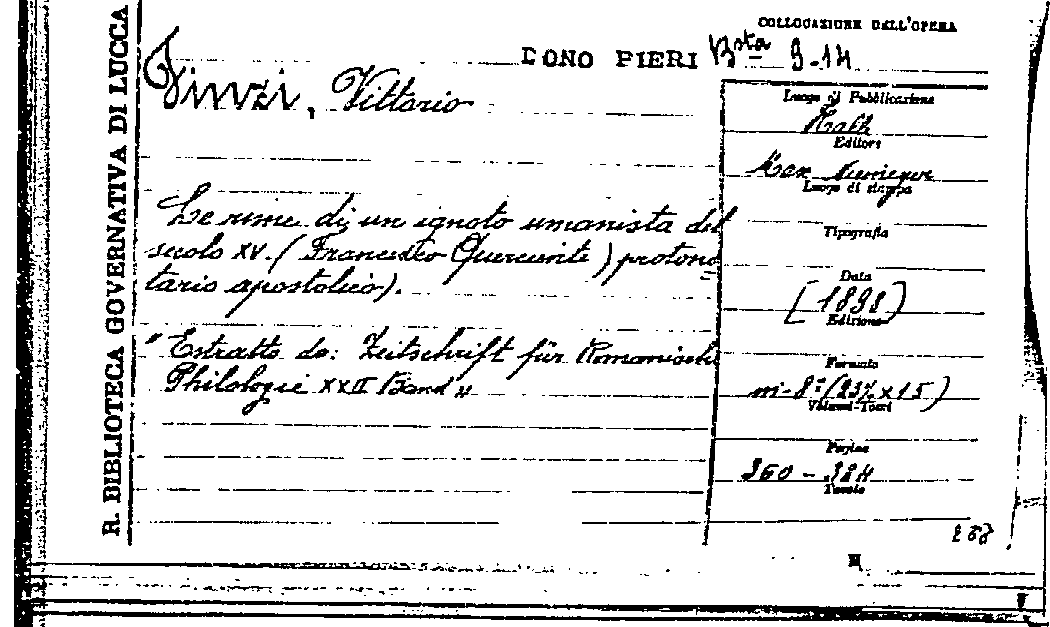 R. BIBLIOTECA GOVERNATIVA DI LUCCA
COLLOCAZIONE DELL'OPERA
DONO PIERI Bsta 9-14
Finzi, Vittorio
Le rime di un ignoto umanista del
secolo XV. (Francesco Quercente) protono
tario apostolico).
"Estratto da: Zeitschrift für Romanische
Philologie XXII Band"
Luogo di Pubblicazione
Halle
Editore
Max Niemeyer
Luogo di stampa
Tipografia
Data
[1898)
Edizione
Formato
in-8° (23½ x 15)
Volumi-Tomi
Pagine
360 - 384
Tavole